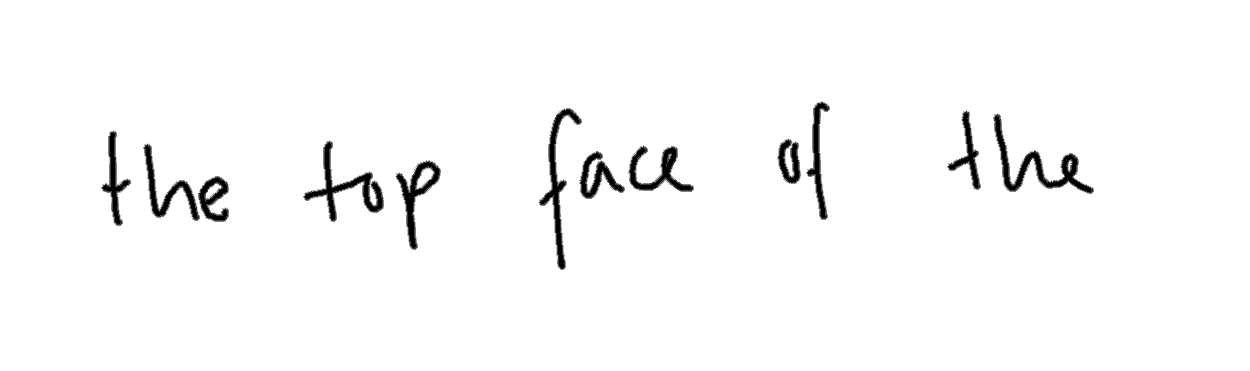 the top face of the